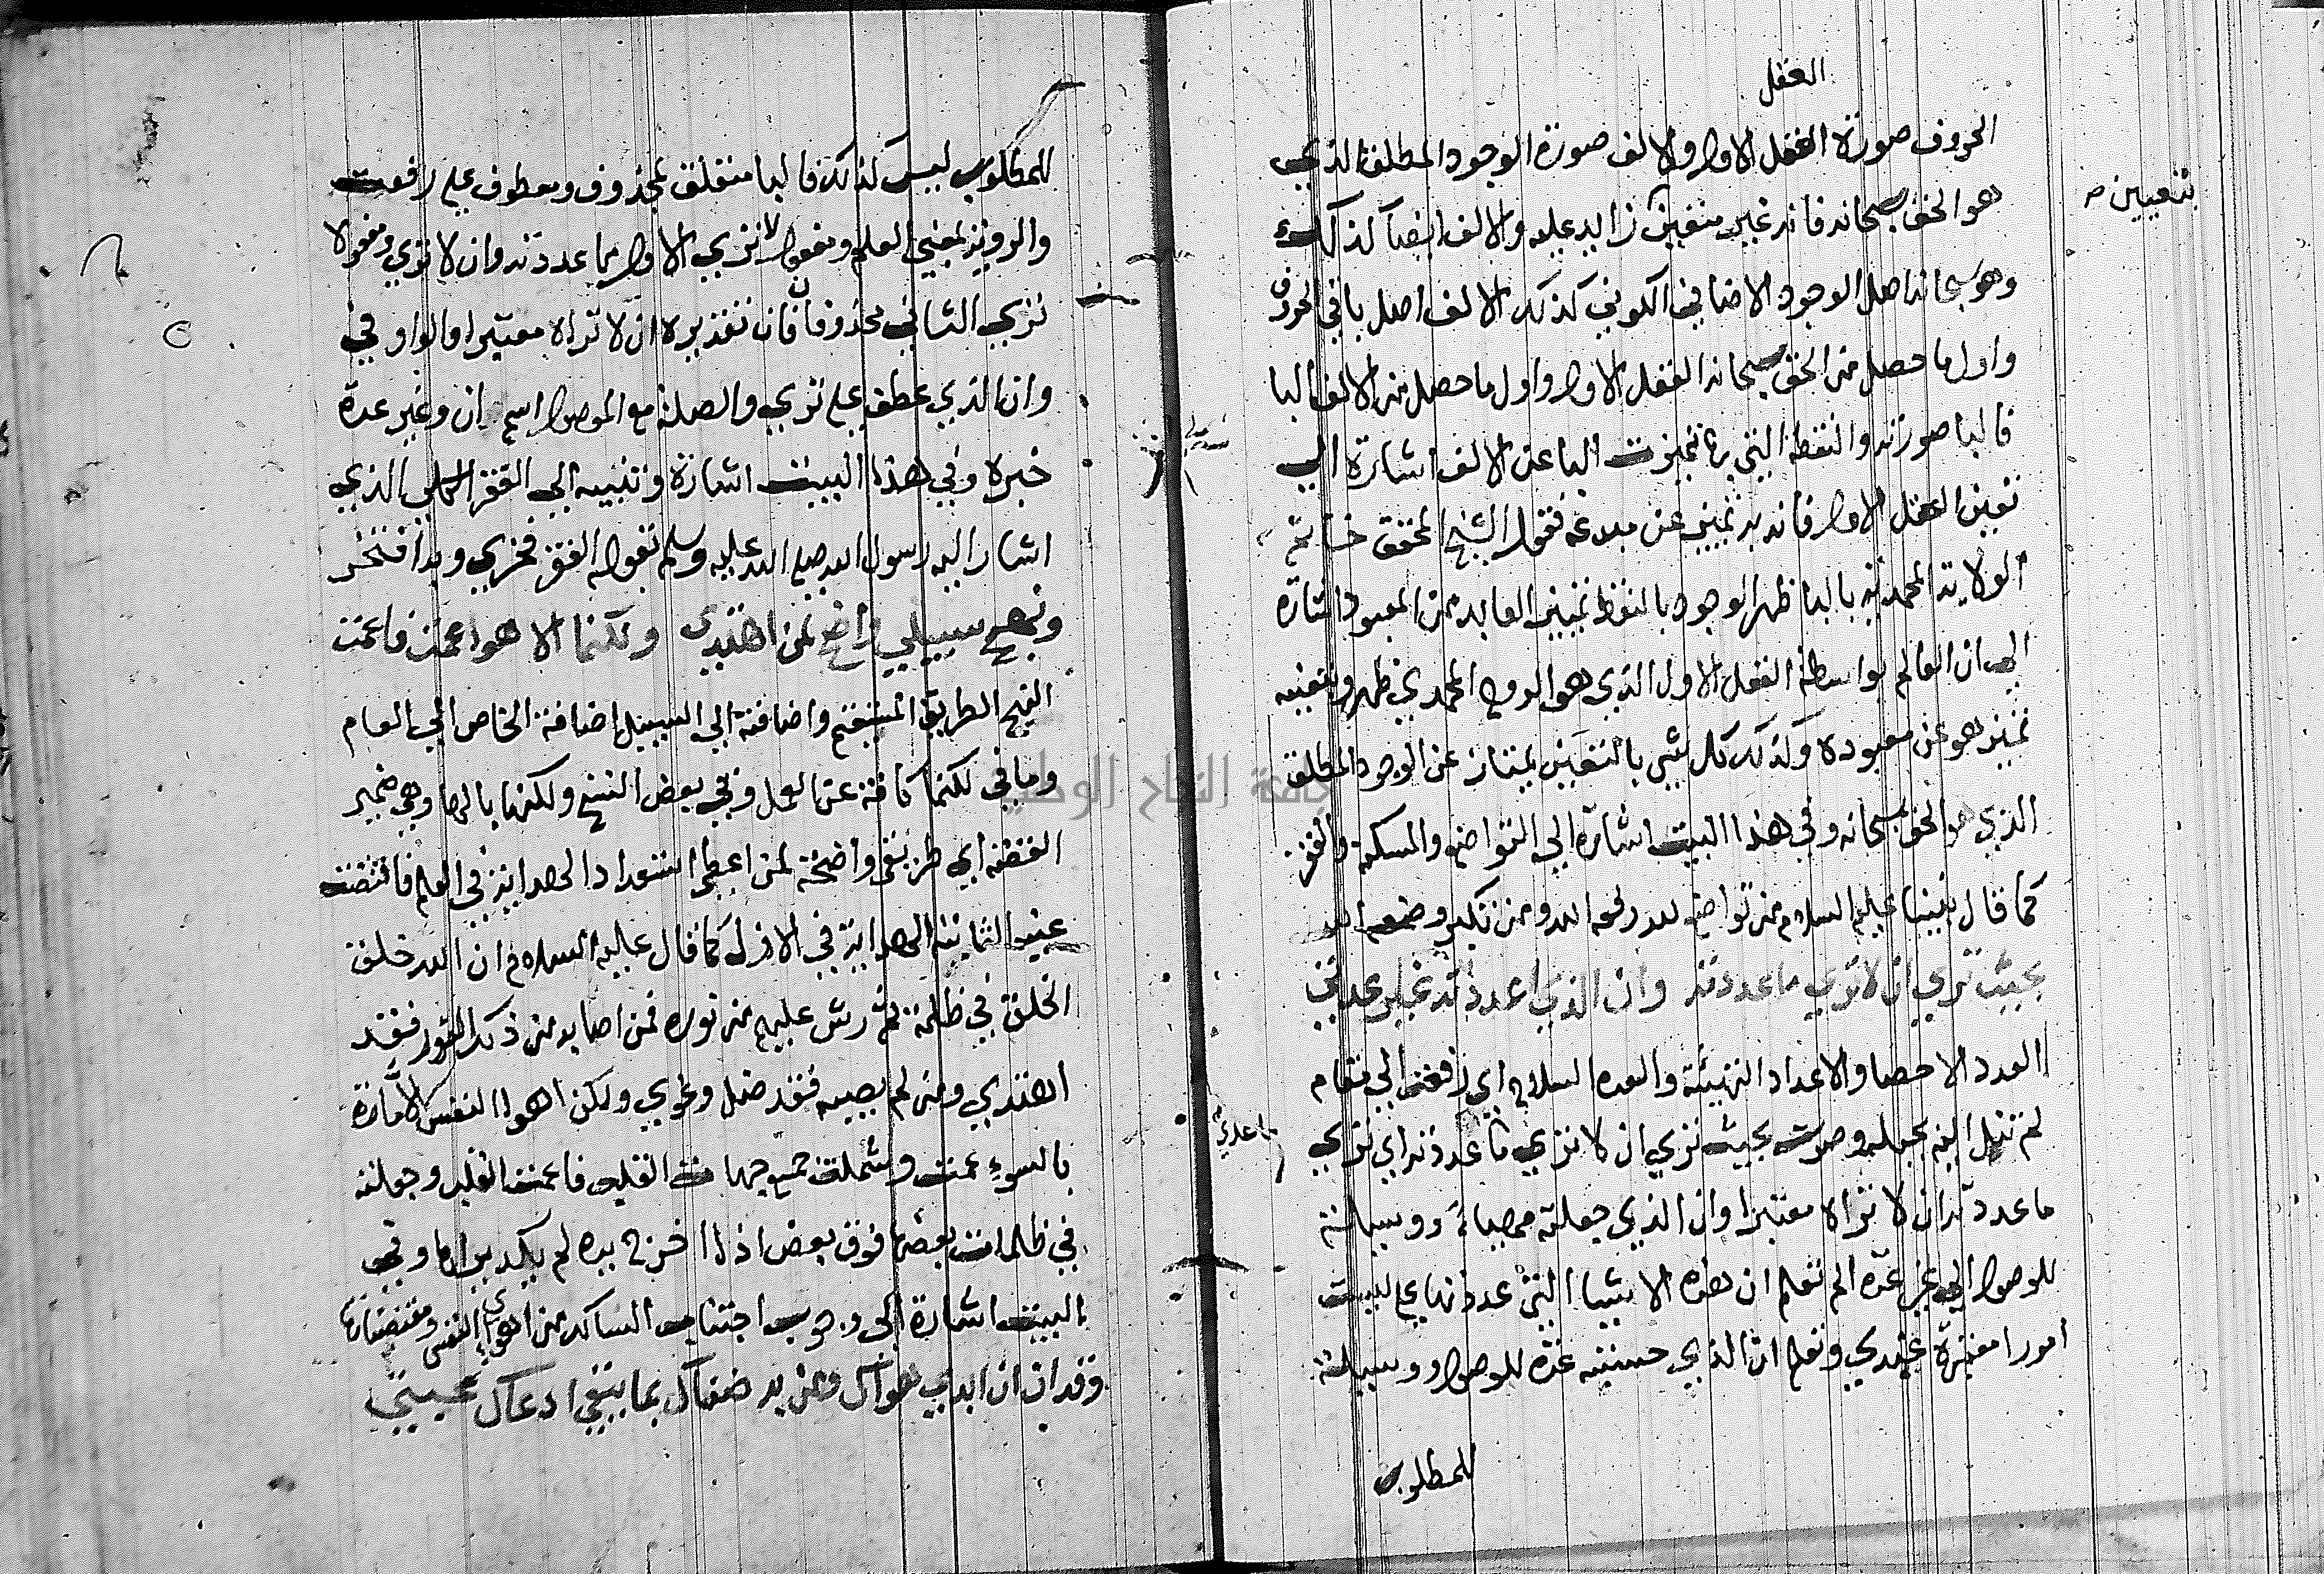 العقل
الحروف صورة العقل الاول والالف صورة الوجود المطلق الذي
هو الحق سبحانه فانه غير متعين زايد عليه والالف ايضا كذلك
بتعيين صـ
وهو سبحانه اصل الوجود الاضافي الكوني كذلك الالف اصل باقي الحروف
واول ما حصل من الحق سبحانه العقل الاول واول ما حصل من الالف البا
فالبا صورته والنقطة التي بها تميزت البا عن الالف اشارة الى
تعين العقل الاول فانه به تميز عن مبدعه فقول الشيخ المحقق خاتم
الولاية المحمدية بالبا ظهر الوجود بالنقطة تميز العابد من المعبود اشارة
الى ان العالم بواسطة العقل الاول الذي هو الروح المحمدي ظهر وبتعينه
تميز هو عن معبوده وكذلك كل شي بالتعين يمتاز عن الوجود المطلق
الذي هو الحق سبحانه وفي هذا البيت اشارة الي التواضع والمسكنة والفقر
كما قال نبينا عليه السلام من تواضع لله رفعه الله ومن تكبر وضعه الله
بحيث تري ان لا تري ما عددته وان الذي اعددته غير عدتي
العدد الاحصا والاعداد التهيئة والعده السلاح اي رفعت الي مقام
لم تنل اليه بحيله وصرت بحيث تري ان لا تري ما عددته اي تري
ما عددته
ما عددته ان لا تراه معتبرا وان الذي جعلته مهياء ووسيلة
للوصول الى غير عده الم تعلم ان هذه الاشيا التي عددتها ليست
امورا معتبرة عندي وتعلم ان الذي حسبته عده للوصول ووسيلة
للمطلوب
للمطلوب ليس كذلك فالبا متعلق بمحذوف ومعطوف علي رفعت
والروية بمعني العلم ومفعولا تري الاول ما عددته وان لا تري ومفعولا
تري الثاني محذوفان فان تقديره ان لا تراه معتبرا والواو في
وان الذي عطف علي تري والصلة مع الموصول اسم ان وغير عدة
خبره وفي هذا البيت اشارة وتنبيه الي الفقر الذي
اشار اليه رسول الله صلي الله عليه وسلم بقوله الفقر فخري وبه افتخر
ونهج سبيلي واضح لمن اهتدي ولكنما الاهوا عمت فاعمت
النهج الطريق واضافته الي السبيل اضافة الخاص الي العام
وما في لكنما كافة عن العمل وفي بعض النسخ ولكنها بالها وهي ضمير
القصة اي طريقي واضحة لمن اعطي استعداد الهداية في العلم فاقتضت
عينه الثابتة الهداية في الازل كما قال عليه السلام ان الله خلق
الخلق في ظلمة ثم رش عليهم من نوره فمن اصابه من ذلك النور فقد
اهتدي ومن لم يصبه فقد ضل وغوي ولكن اهوا النفس الامارة
بالسوء عمت وشملت جميع جهات القلب فاعمت القلب وجعلته
في ظلمات بعضها فوق بعض اذا اخرج يده لم يكد يراها وفي
البيت اشارة الى وجوب اجتناب السالك من اهوا النفس ومقتضياتها
وقد ان ان ابدي هواك ومن به ضناك بما ينفي ادعاك محبتي
جامعة النجاح الوطنية